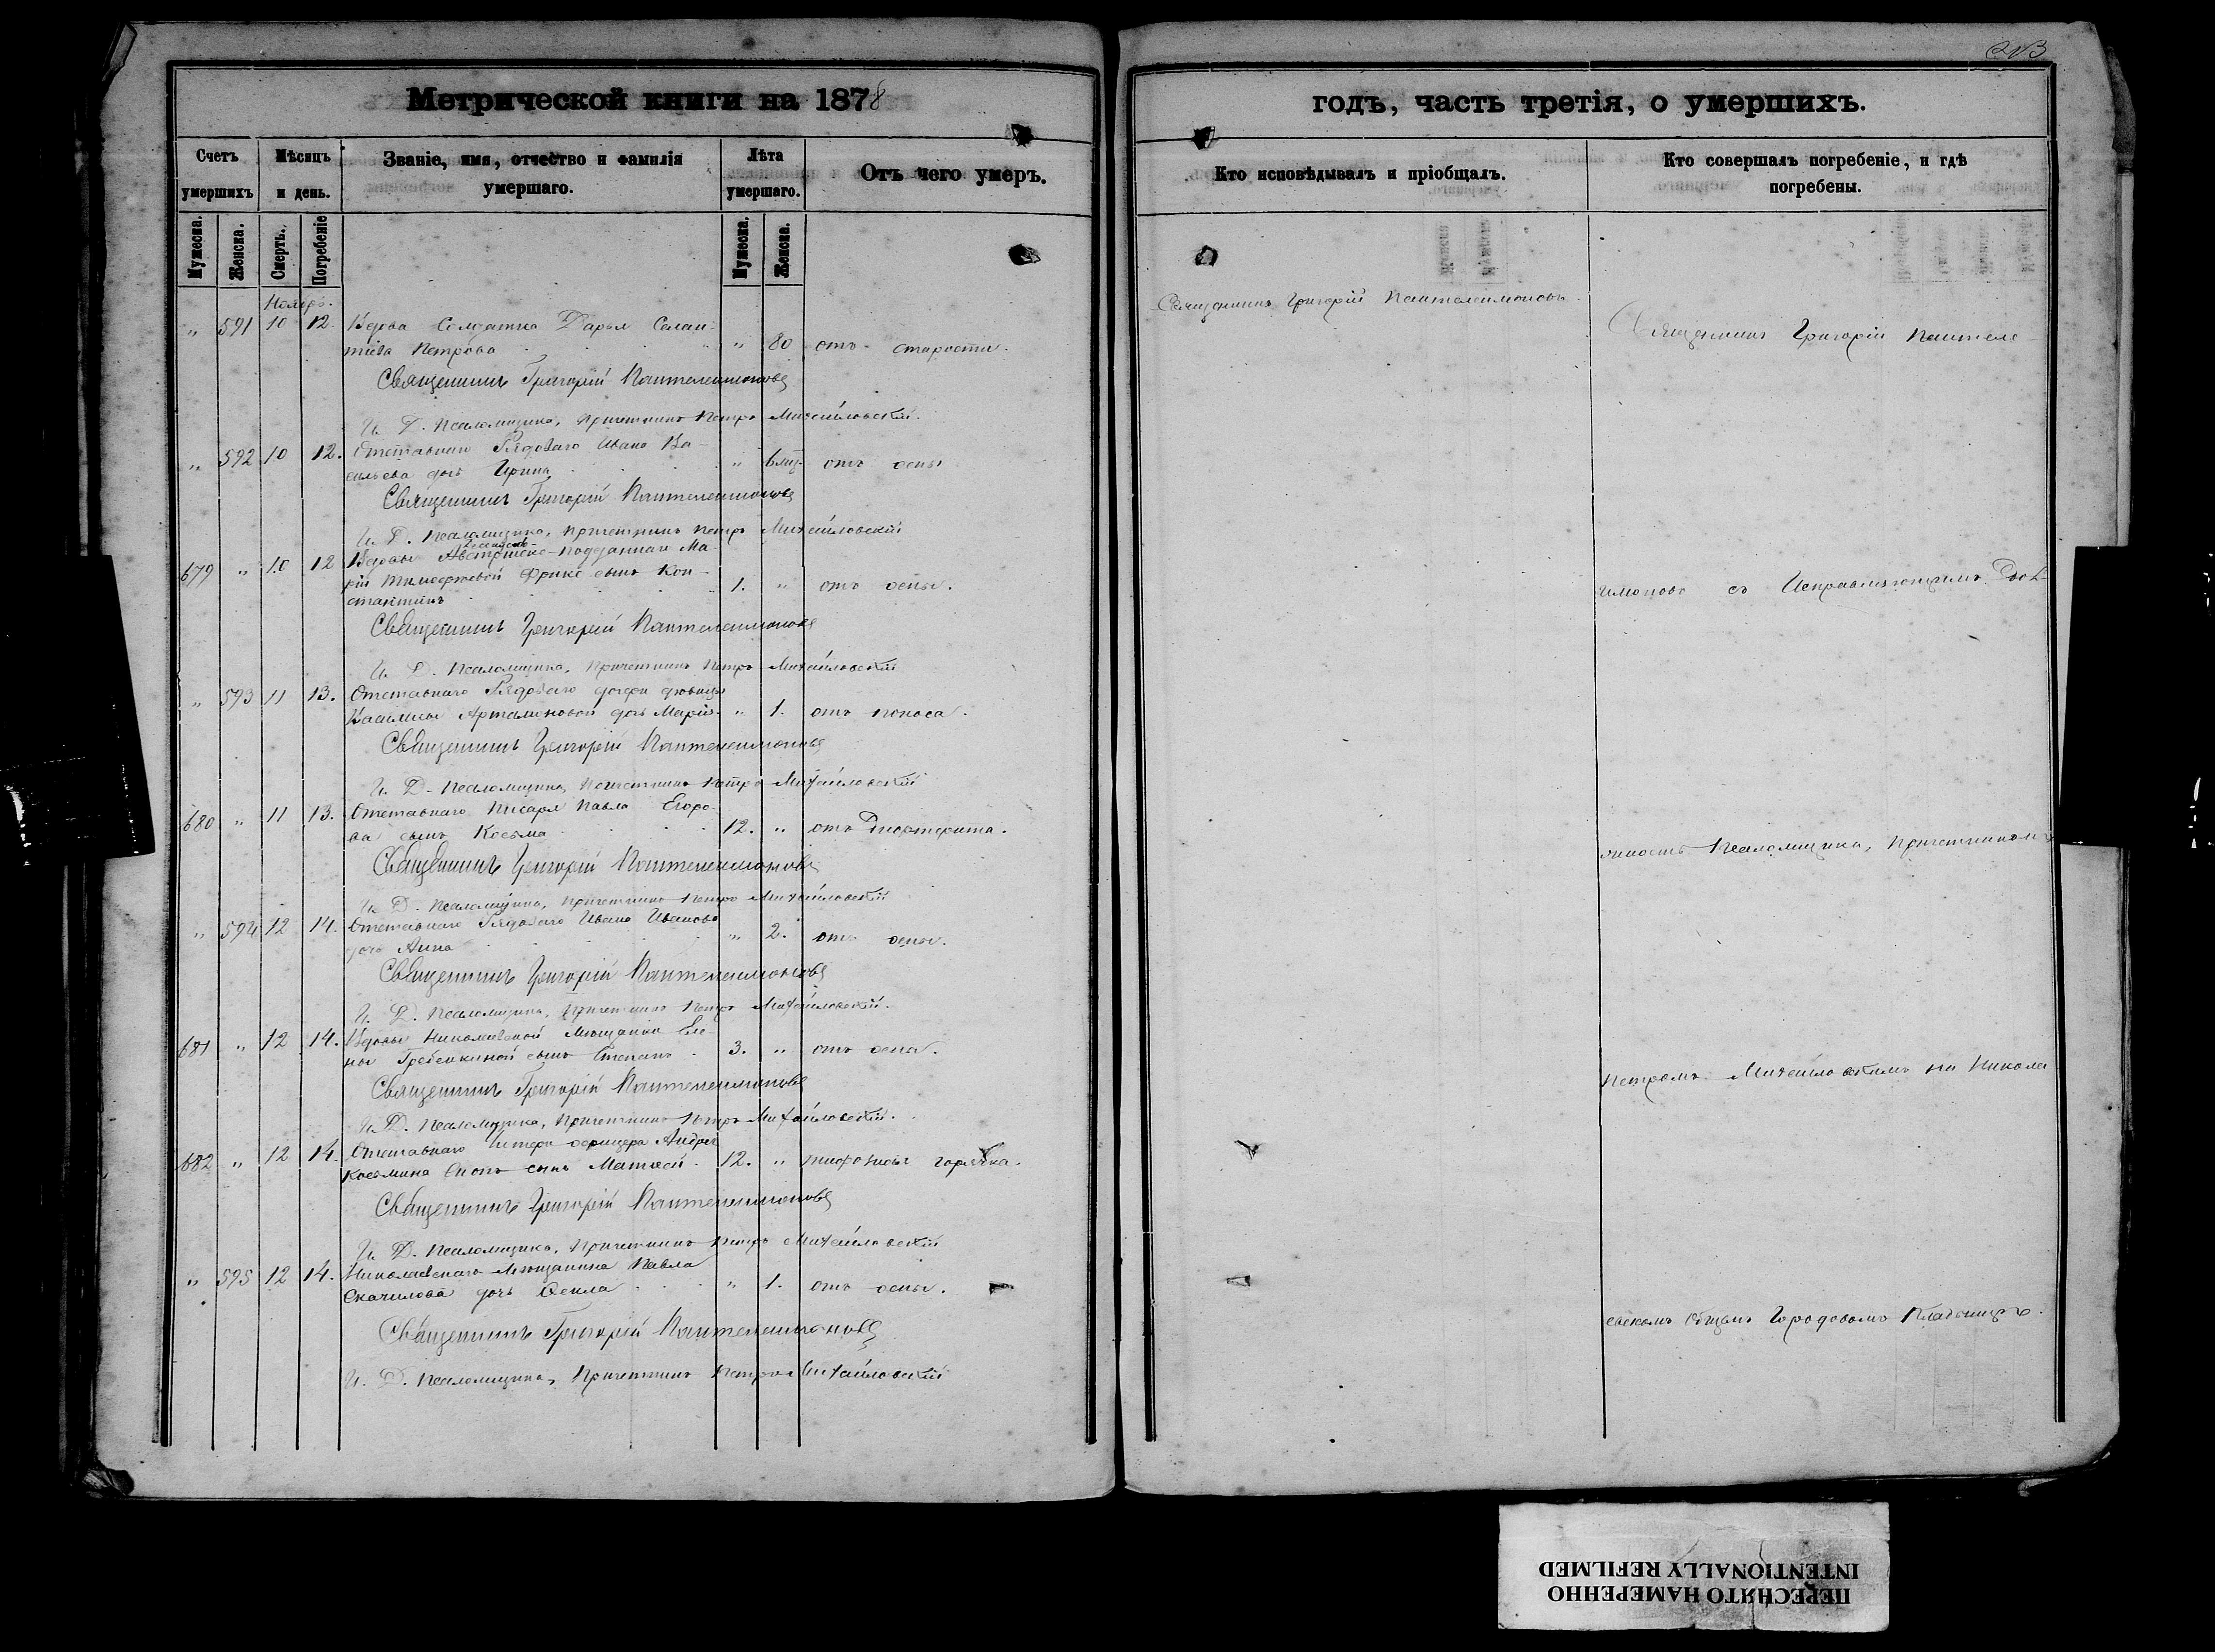 Метрической книги на 1878
Счетъ умершихъ
Мѣсяцъ и день.
Званіе, имя, отчество и фамилія умершаго.
Лѣта умершаго.
Отъ чего умеръ.
Мужеска. Женска. Смерть. Погребеніе Мужеска. Женска.
Ноябрь.
" 591 10 12. Вдова Солдатка Дарья
Петрова " 80 отъ старости.
Священникъ Григорій Пантелеимоновъ
И. Д. Псаломщика, Причетникъ Петръ Михайловскій.
" 592 10 12. Отставнаго Рядоваго Ивана Ва-
сильева дочь Ирина " 6 отъ оспы
Священникъ Григорій Пантелеимоновъ
И. Д. Псаломщика, Причетникъ Петръ Михайловскій
679 " 10 12 Вдовы Австрійско-подданнаго Ма-
рій сынъ Кон-
стантинъ 1. " отъ оспы.
Священникъ Григорій Пантелеимоновъ
И. Д. Псаломщика, Причетникъ Петръ Михайловскій
" 593 11 13. Отставнаго Рядоваго дочери дѣвицы
Артамоновой дочь Марія " 1. отъ поноса.
Священникъ Григорій Пантелеимоновъ
И. Д. Псаломщика, Причетникъ Петръ Михайловскій
680 " 11 13. Отставнаго Писаря Павла Егоро-
ва сынъ Косьма 12. " отъ Дифтерита.
Священникъ Григорій Пантелеимоновъ
И. Д. Псаломщика, Причетникъ Петръ Михайловскій
" 594 12 14. Отставнаго Рядоваго Ивана Иванова
дочь Анна " 2. отъ оспы.
Священникъ Григорій Пантелеимоновъ
И. Д. Псаломщика, Причетникъ Петръ Михайловскій.
681 " 12 14. Вдовы Николаевской Мѣщанки Еле-
ны Гребенкиной сынъ Степанъ 3. " отъ оспы.
Священникъ Григорій Пантелеимоновъ
И. Д. Псаломщика, Причетникъ Петръ Михайловскій.
682 " 12 14. Отставнаго Унтеръ офицера Андрея
Косьмина сынъ Матѳей 12. " горячка.
Священникъ Григорій Пантелеимоновъ
И. Д. Псаломщика, Причетникъ Петръ Михайловскій
" 595 12 14. Николаевскаго Мѣщанина Павла
Скачилова дочь Ѳекла " 1. отъ оспы.
Священникъ Григорій Пантелеимоновъ
И. Д. Псаломщика, Причетникъ Петръ Михайловскій
годъ, часть третія, о умершихъ.
Кто исповѣдывалъ и пріобщалъ.
Кто совершалъ погребеніе, и гдѣ погребены.
Священникъ Григорій Пантелеимоновъ
Священникъ Григорій Пантеле-
имоновъ съ Исправляющимъ Долж-
ность Псаломщика, Причетникомъ
Петромъ Михайловскимъ на Никола-
евскомъ Общемъ Городовомъ Кладбищѣ.
ПЕРЕСНЯТО НАМЕРЕННО
INTENTIONALLY REFILMED